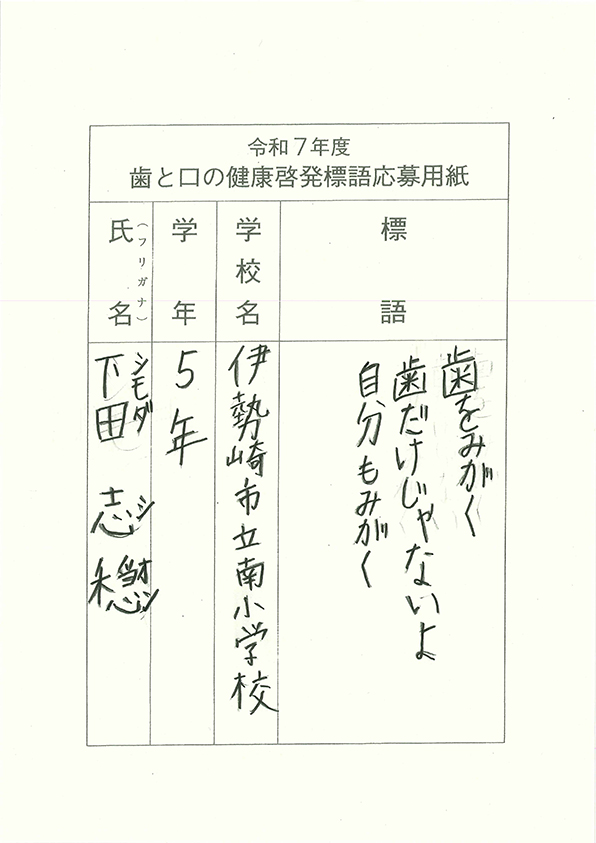 令和7年度
歯と口の健康啓発標語応募用紙
標語
歯をみがく
歯だけじゃないよ
自分もみがく
学校名
伊勢崎市立南小学校
学年
5年
氏名
（フリガナ）
下田 志穏
シモダ シオン